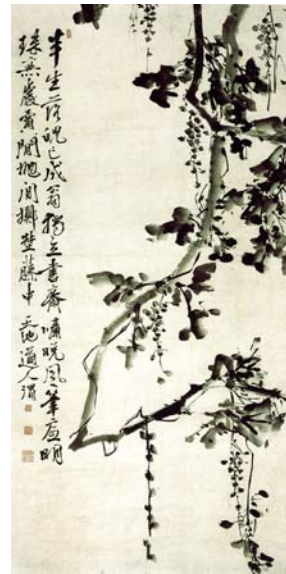 半生落魄已成翁獨立書齋嘯晚風筆底明
珠無處賣閒拋閒擲野藤中 天池道人渭